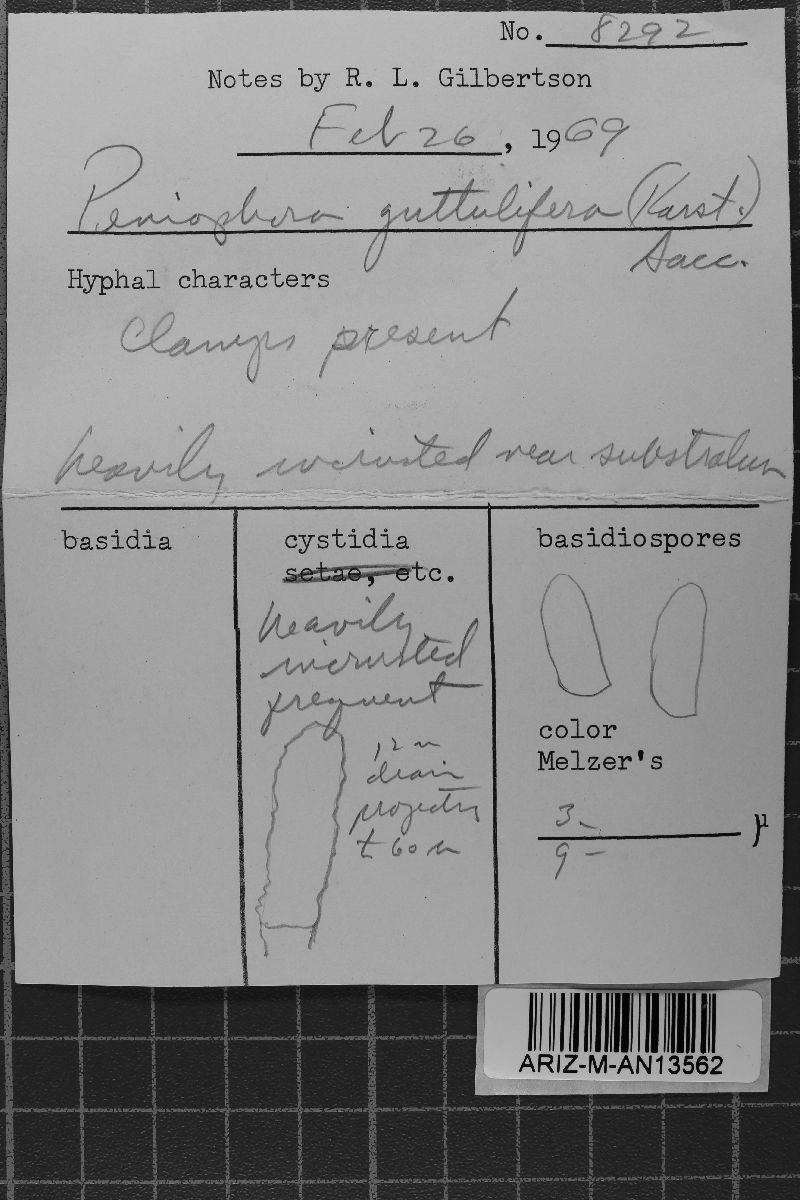 No. 8292
Notes by R. L. Gilbertson
Feb 26, 1969
Peniophora guttulifera (Karst.)
Sacc.
Hyphal characters
Clamps present
heavily incrusted near substratum
basidia
cystidia
setae, etc.
heavily
incrusted
frequent
12 u
diam
projecting
to 60 u
basidiospores
color
Melzer's
3 –
9 –
µ
ARIZ-M-AN13562